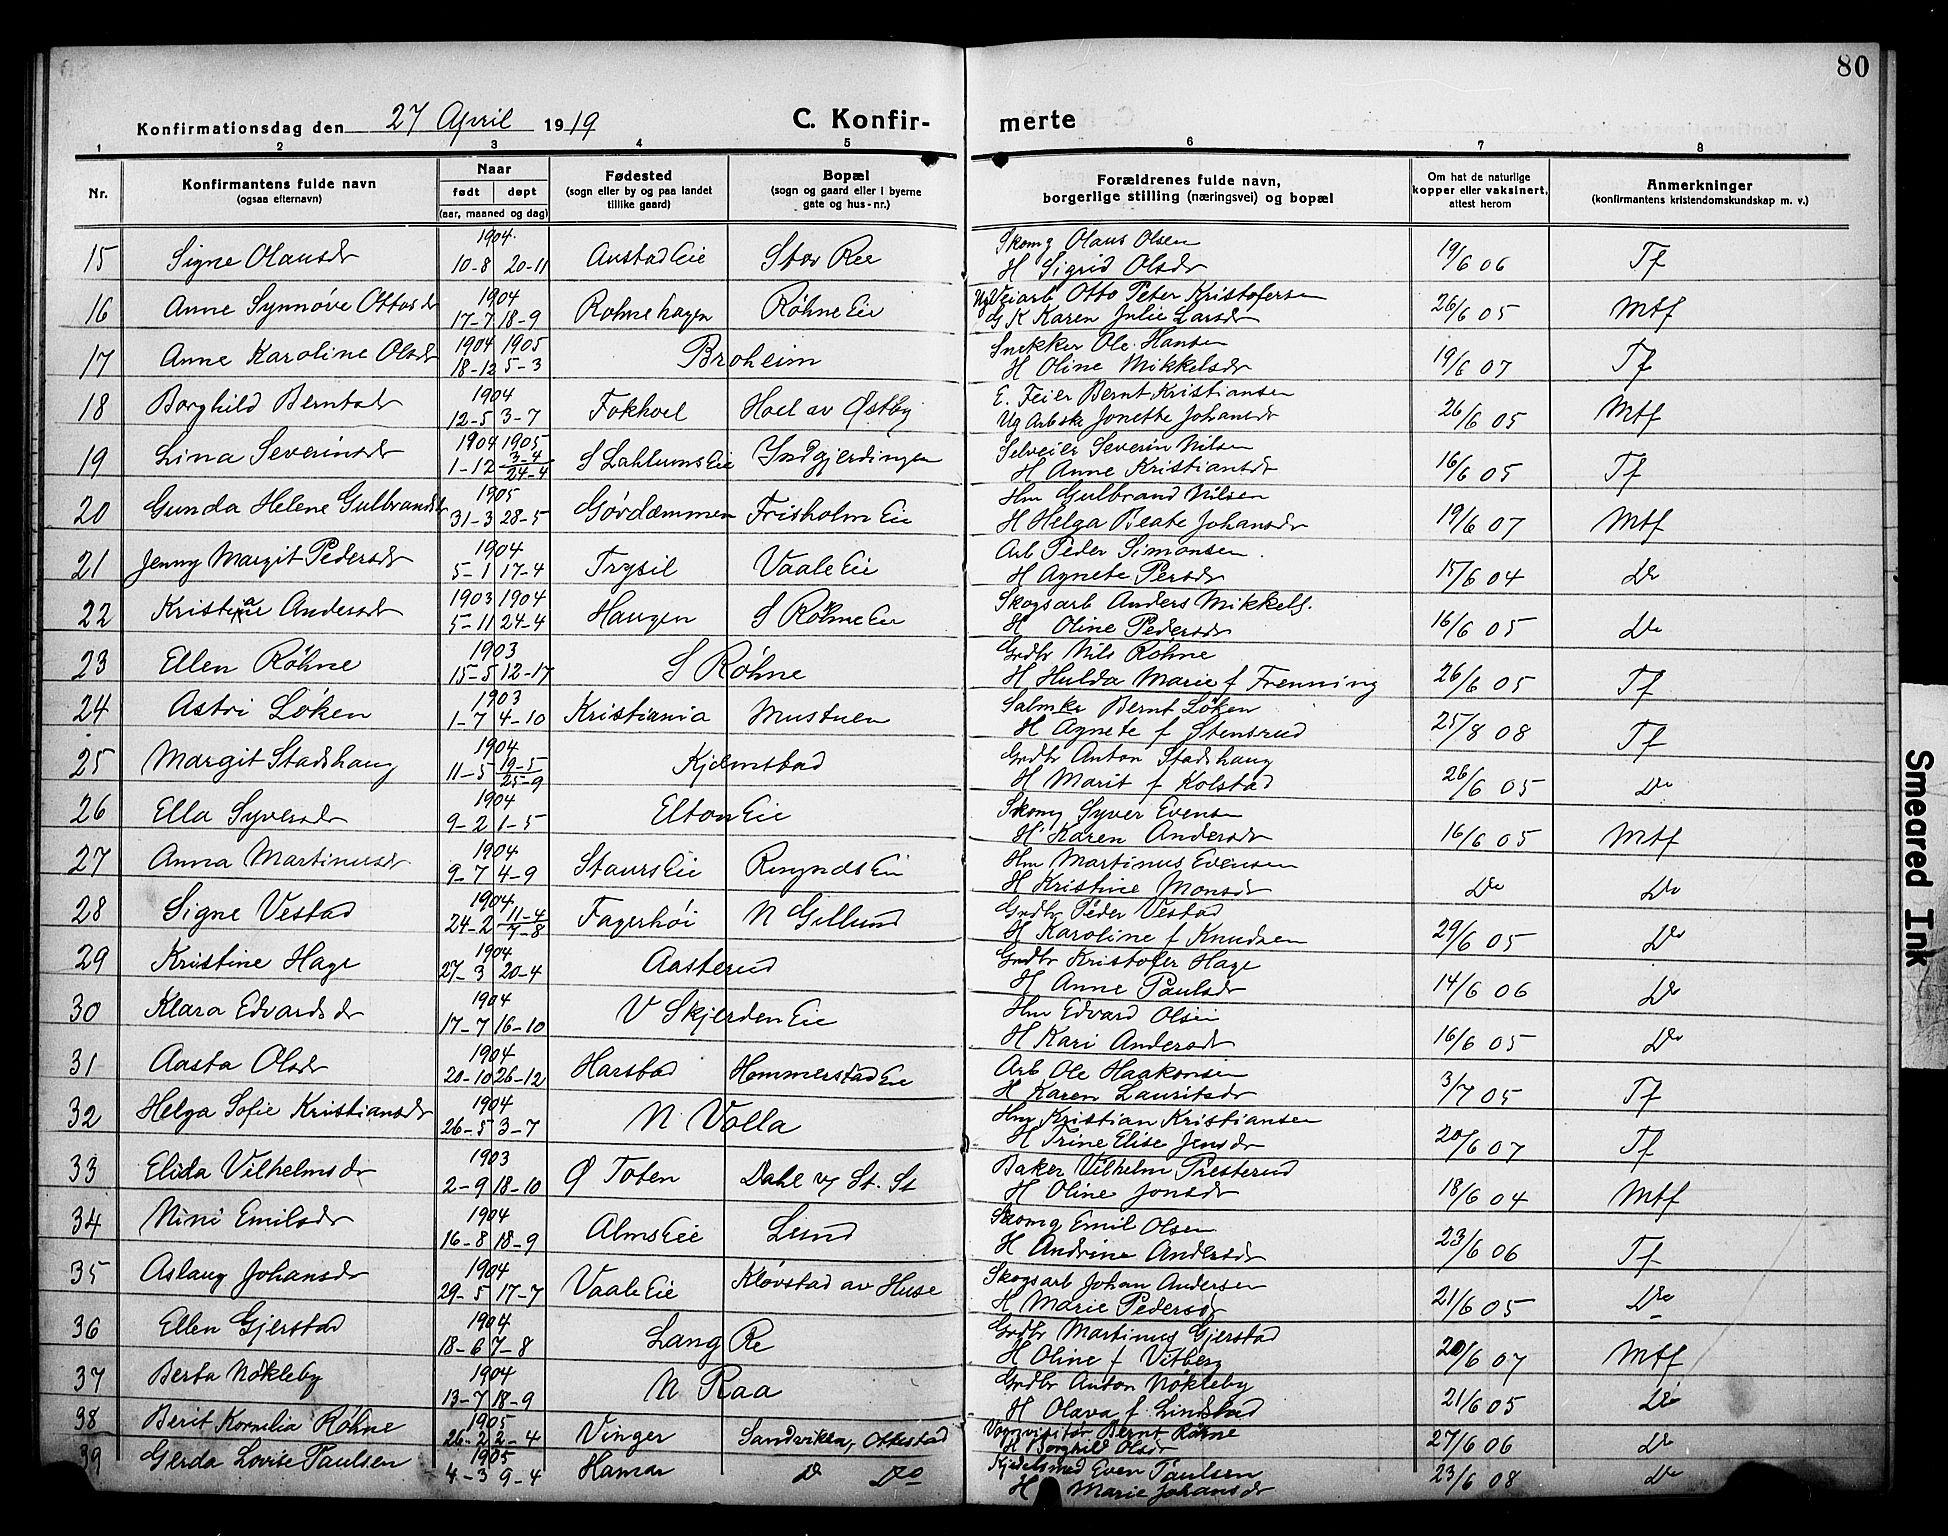 80
Konfirmationsdag den 27 April 1919
C. Konfirmerte
1 2 3 4 5 6 7 8
Nr. | Konfirmantens fulde navn (ogsaa efternavn) | Naar født døpt (aar, maaned og dag) | Fødested (sogn eller by og paa landet tillike gaard) | Bopæl (sogn og gaard eller i byerne gate og hus-nr.) | Forældrenes fulde navn, borgerlige stilling (næringsvei) og bopæl | Om hat de naturlige kopper eller vaksinert, attest herom | Anmerkninger (konfirmantens kristendomskundskap m. v.)
15 Signe Olausdr 1904 10-8 20-11 Austad Eie Stor Ree Skomg Olaus Olsen H Sigrid Olsdr 19/6 06 Tf
16 Anne Synnøve Ottosdr 1904 17-7 18-9 Rohnehagen Røhne Eie Ug Veiarb Otto Peter Kristofersen G K Karen Julie Larsdr 26/6 05 Mtf
17 Anne Karoline Olsdr 1904 1905 18-12 5-3 Broheim Snekker Ole Hansen H Oline Mikkelsdr 19/6 07 Tf
18 Borghild Berntsdr 1904 12-5 3-7 Fokhoel Hoel av Østby E. Feier Bernt Kristiansen Ug Arbske Jonette Johansdr 26/6 05 Mtf
19 Lina Severinsdr 1904 1905 1-12 3-4 24-4 S Lahlums Eie Indgjerdingen Selveier Severin Nilsen H Anne Kristiansdr 16/6 05 Tf
20 Gunda Helene Gulbrandsdr 1905 31-3 28-5 Gørdæmmen Frisholm Eie Hm Gulbrand Nilsen H Helga Beate Johansdr 19/6 07 Mtf
21 Jenny Margit Pedersdr 1904 5-1 17-4 Trysil Vaale Eie Arb Peder Simonsen. H Agnete Persdr 15/6 04 Do
22 Kristina Andersdr 1903 1904 5-11 24-4 Haugen S Røhne Eie Skogsarb Anders Mikkels. H Oline Pedersdr 16/6 05 Do
23 Ellen Røhne 1903 15-5 12-17 S Røhne Grdbr Nils Røhne H Hulda Marie f Frenning 26/6 05 Tf
24 Astri Løken 1903 1-7 4-10 Kristiania Mustuen Salmker Bernt Løken H Agnete f Stensrud 25/8 08 Tf
25 Margit Stadshaug 1904 11-5 19-5 25-9 Kjelmstad Grdbr Anton Stadshaug H Marit f Kolstad 26/6 05 Do
26 Ella Syversdr 1904 9-2 1-5 Elton Eie Skomg Syver Evensen H Karen Andersdr 16/6 05 Mtf
27 Anna Martinusdr 1904 9-7 4-9 Staurs Eie Ringnds Eie Hm Martinus Evensen H Kristine Monsdr Do Do
28 Signe Vestad 1904 24-2 11-4 7-8 Fagerhøi N Gillund Grdbr Peder Vestad H Karoline f Knudsen 29/6 05 Do
29 Kristine Hage 1904 27-3 20-4 Aasterud Grdbr Kristofer Hage H Anne Paulsdr 14/6 06 Do
30 Klara Edvardsdr 1904 17-7 16-10 V Skjerden Eie Hm Edvard Olsen H Kari Andersdr 16/6 05 Do
31 Aasta Olsdr 1904 20-10 26-12 Harstad Hommerstad Eie Arb Ole Haakonsen H Karen Lauritsdr 3/7 05 Tf
32 Helga Sofie Kristiansdr 1904 26-5 3-7 N Volla Hm Kristian Kristiansen H Trine Elise Jensdr 20/6 07 Tf
33 Elida Vilhelmsdr 1903 2-9 18-10 Ø Toten Dahl v/ St. St Baker Vilhelm Presterud H Oline Jonsdr 18/6 04 Mtf
34 Nini Emilsdr 1904 16-8 18-9 Alms Eie Lund Skomg Emil Olsen H Andrine Andersdr 23/6 06 Tf
35 Aslaug Johansdr 1904 29-5 17-7 Vaale Eie Kløvstad av Huse Skogsarb Johan Andersen H Marie Pedersdr 21/6 05 Do
36 Ellen Gjerstad 1904 18-6 7-8 Lang Re Grdbr Martinus Gjerstad H Oline f Vitberg 20/6 07 Mtf
37 Berta Nøkleby 1904 13-7 18-9 N Raa Grdbr Anton Nøkleby H Olava f Lindstad 21/6 05 Do
38 Berit Kornelia Røhne 1905 26-2 2-4 Vinger Sandviken, Ottestad Vognvisitør Bernt Røhne H Borghild Olsdr 27/6 06 Do
39 Gerda Lovise Paulsen 1905 4-3 9-4 Hamar Do Do Kjedelsmed Even Paulsen H Marie Johansdr 23/6 08 Do
Smeared Ink